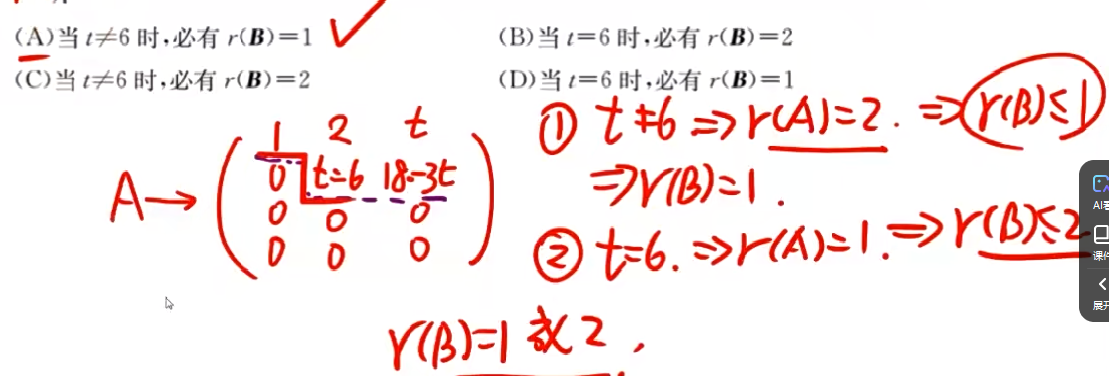 (A)当 t≠6 时,必有 r(B)=1
(B)当 t=6 时,必有 r(B)=2
(C)当 t≠6 时,必有 r(B)=2
(D)当 t=6 时,必有 r(B)=1
A→
1 2 t
0 t-6 18-3t
0 0 0
0 0 0
① t≠6 ⇒ r(A)=2. ⇒ r(B)≤1
⇒r(B)=1.
② t=6. ⇒r(A)=1. ⇒ r(B)≤2
r(B)=1 或 2,
课件
展开